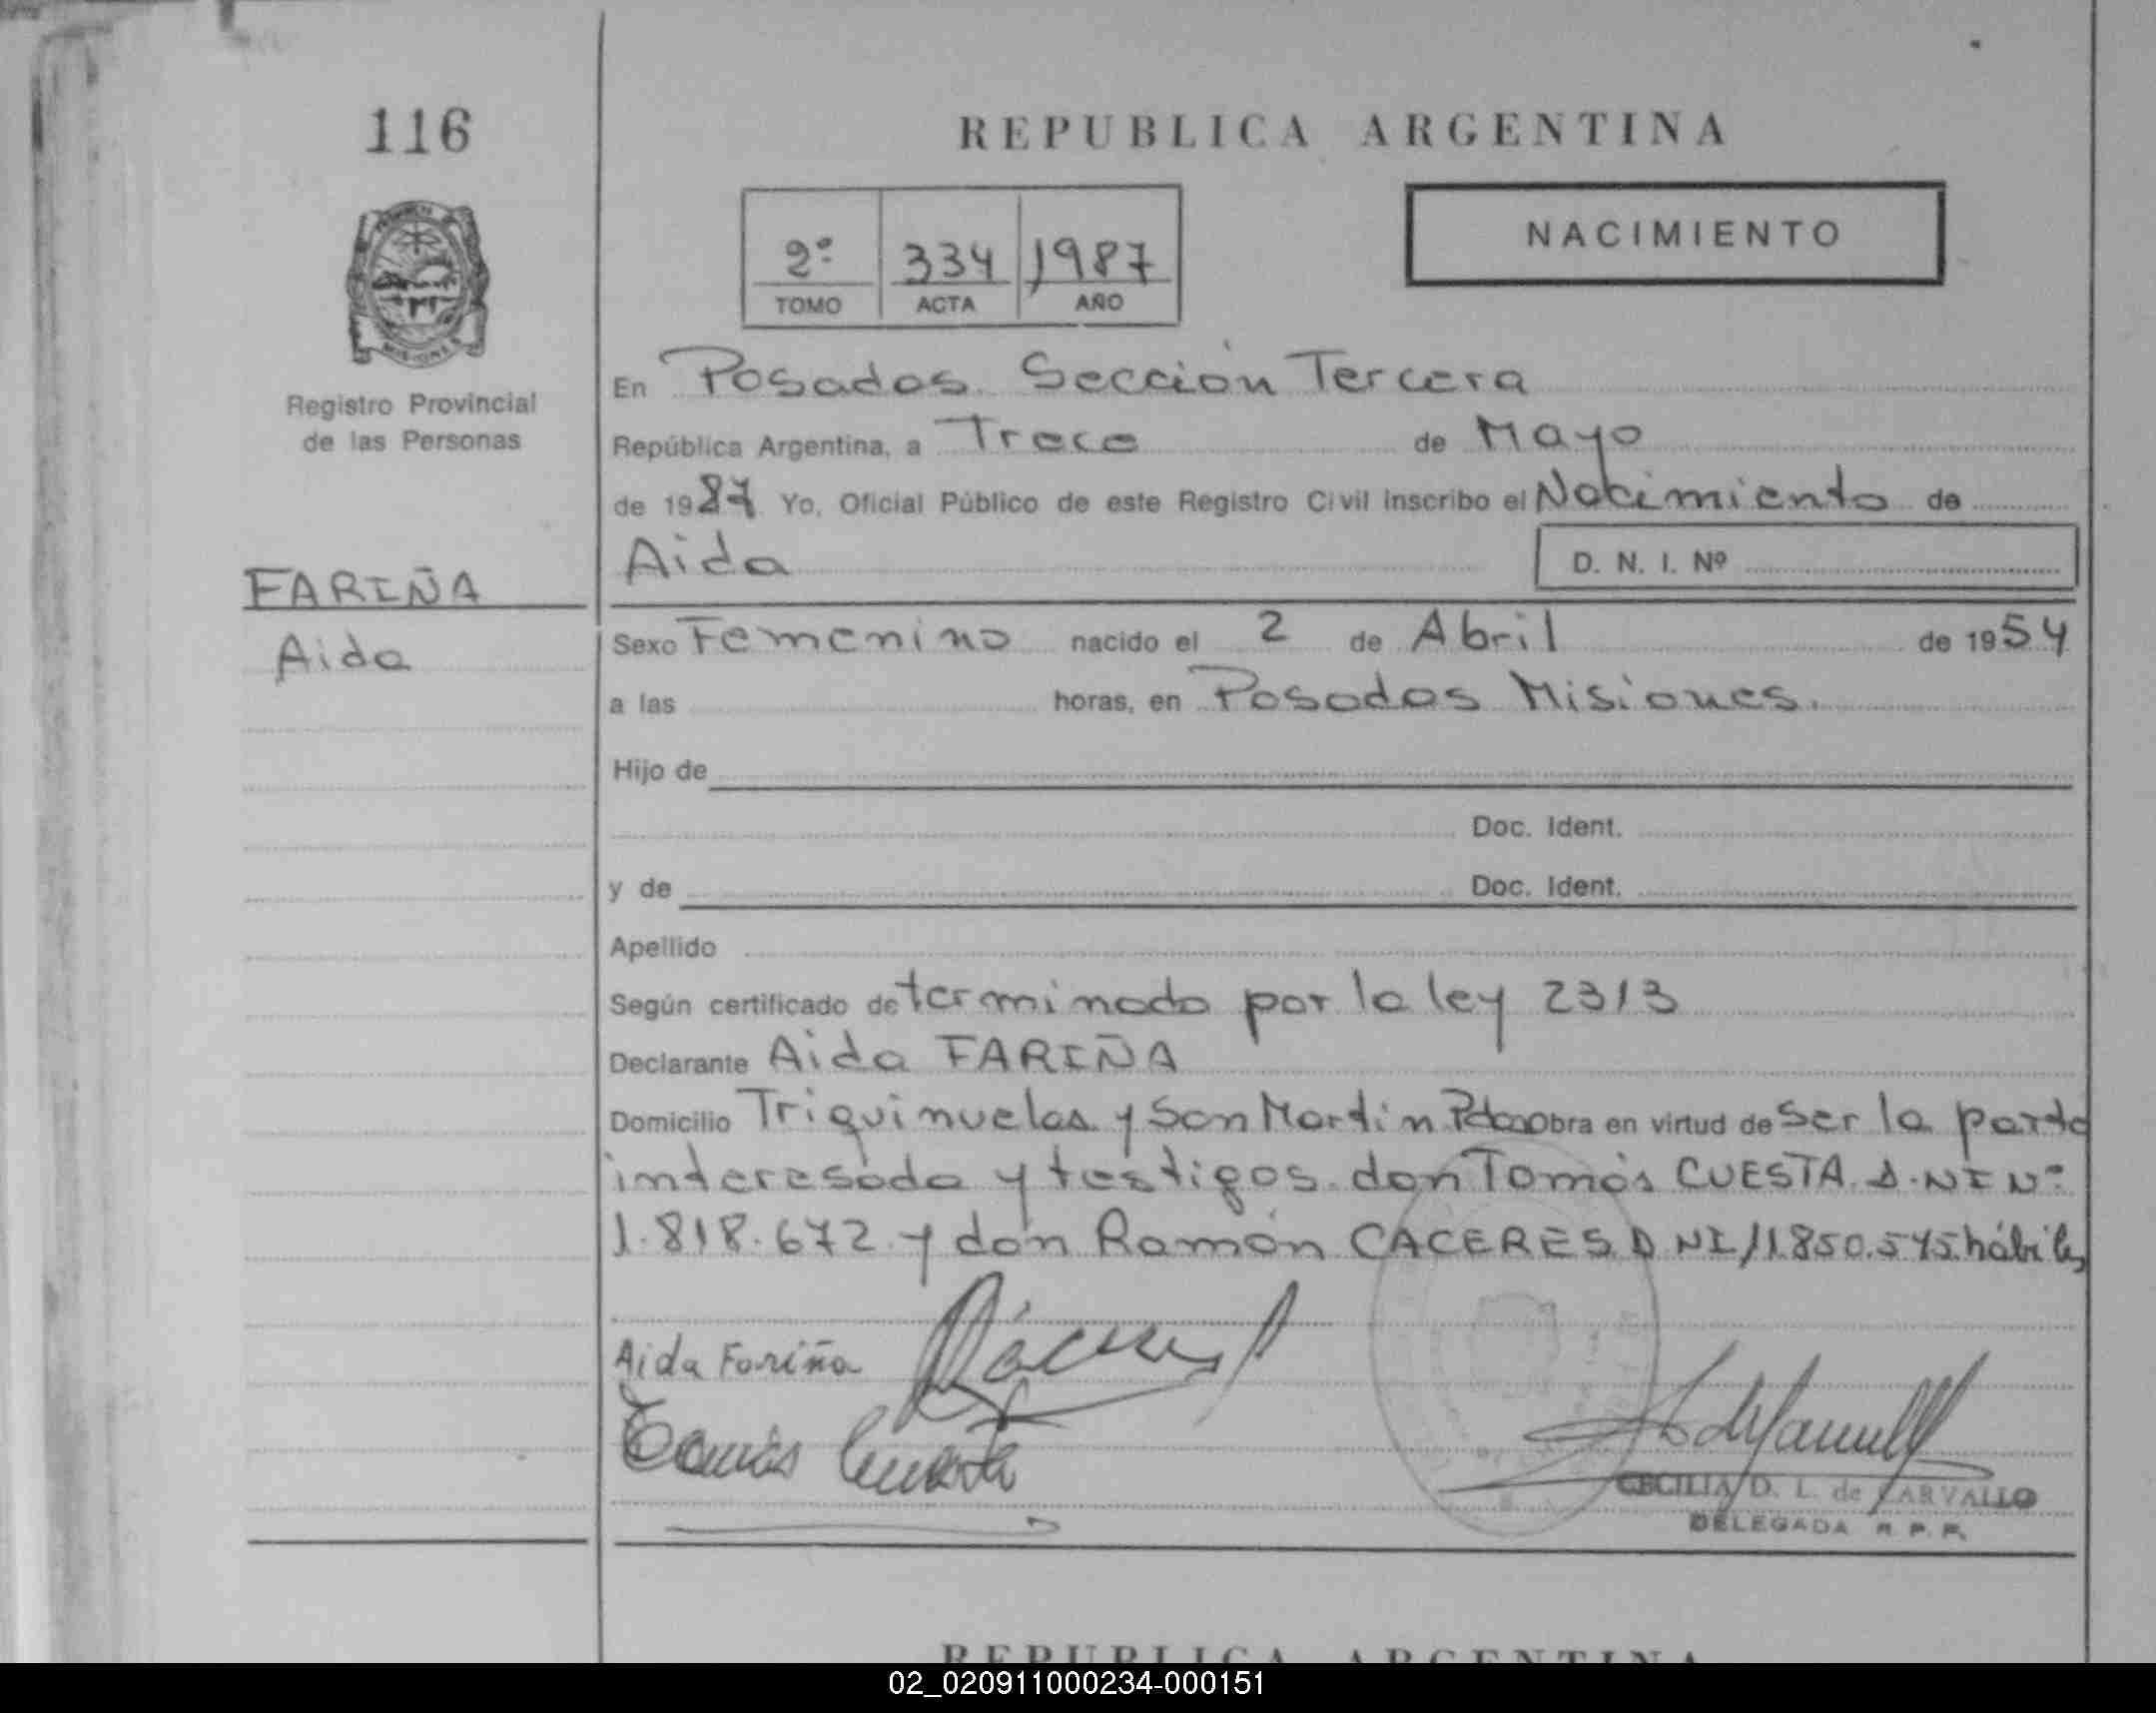 116
REPUBLICA ARGENTINA
2º 334 1987
TOMO ACTA AÑO
NACIMIENTO
MISIONES
Registro Provincial
de las Personas
En Posadas Sección Tercera
República Argentina, a Trece de Mayo
de 1987 Yo, Oficial Público de este Registro Civil inscribo el Nacimiento de
Aida D. N. I. Nº
FARIÑA
Aida
Sexo Femenino nacido el 2 de Abril de 1954
a las horas, en Posadas Misiones.
Hijo de
Doc. Ident.
y de Doc. Ident.
Apellido
Según certificado determinado por la ley 2313
Declarante Aida FARIÑA
Domicilio Triquinuelas y San Martín Pdas obra en virtud de ser la parte
interesada y testigos don Tomás CUESTA D.NI Nº
1.818.672 y don Ramón CACERES D NI 11.850.545 hábiles
Aida Fariña
Tomás Cuesta
CECILIA D. L. de CARVALLO
DELEGADA R. P. P.
REPUBLICA ARGENTINA
02_020911000234-000151